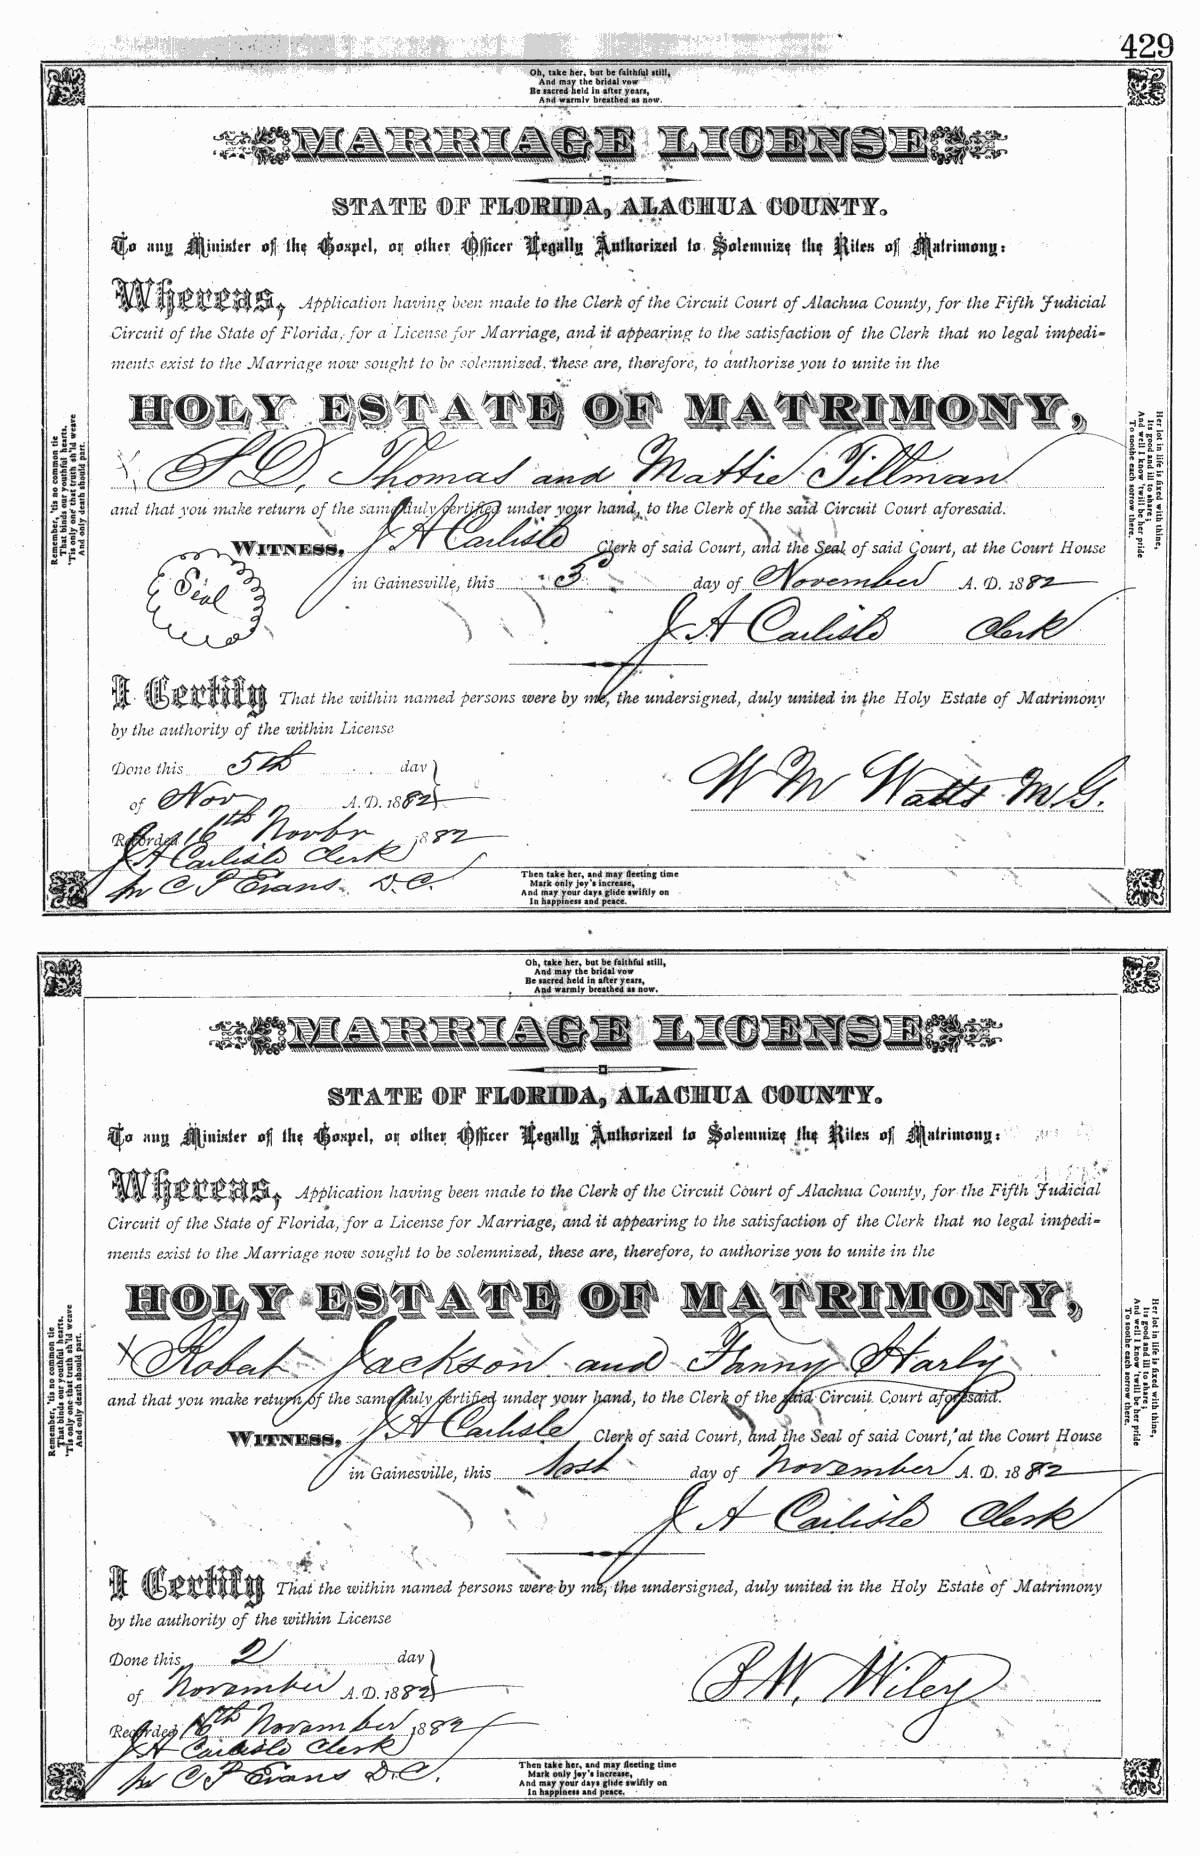 429
Oh, take her, but be faithful still,
And may the bridal vow
Be sacred held in after years,
And warmly breathed as now.
MARRIAGE LICENSE
STATE OF FLORIDA, ALACHUA COUNTY.
To any Minister of the Gospel, or other Officer Legally Authorized to Solemnize the Rites of Matrimony:
Whereas, Application having been made to the Clerk of the Circuit Court of Alachua County, for the Fifth Judicial
Circuit of the State of Florida, for a License for Marriage, and it appearing to the satisfaction of the Clerk that no legal impedi-
ments exist to the Marriage now sought to be solemnized, these are, therefore, to authorize you to unite in the
HOLY ESTATE OF MATRIMONY,
S. D. Thomas and Mattie Tillman
and that you make return of the same duly certified under your hand, to the Clerk of the said Circuit Court aforesaid.
WITNESS, J A Carlisle Clerk of said Court, and the Seal of said Court, at the Court House
Seal
in Gainesville, this 3d day of November A. D. 1882
J A Carlisle Clerk
I Certify That the within named persons were by me, the undersigned, duly united in the Holy Estate of Matrimony
by the authority of the within License
Done this 5th day
of Nov A. D. 1882
W M Watts M.G.
Recorded 16th Novbr 1882
J A Carlisle Clerk
per C P Evans D.C.
Remember, 'tis no common tie
That binds our youthful hearts.
'Tis only one that truth sh'ld weave
And only death should part.
Her lot in life is fixed with thine,
Its good and ill to share;
And well I know 'twill be her pride
To soothe each sorrow there.
Then take her, and may fleeting time
Mark only joy's increase,
And may your days glide swiftly on
In happiness and peace.
Oh, take her, but be faithful still,
And may the bridal vow
Be sacred held in after years,
And warmly breathed as now.
MARRIAGE LICENSE
STATE OF FLORIDA, ALACHUA COUNTY.
To any Minister of the Gospel, or other Officer Legally Authorized to Solemnize the Rites of Matrimony:
Whereas, Application having been made to the Clerk of the Circuit Court of Alachua County, for the Fifth Judicial
Circuit of the State of Florida, for a License for Marriage, and it appearing to the satisfaction of the Clerk that no legal impedi-
ments exist to the Marriage now sought to be solemnized, these are, therefore, to authorize you to unite in the
HOLY ESTATE OF MATRIMONY,
x Robert Jackson and Fanny Harly
and that you make return of the same duly certified under your hand, to the Clerk of the said Circuit Court aforesaid.
WITNESS, J A Carlisle Clerk of said Court, and the Seal of said Court, at the Court House
in Gainesville, this 1st day of November A. D. 1882
J A Carlisle Clerk
I Certify That the within named persons were by me, the undersigned, duly united in the Holy Estate of Matrimony
by the authority of the within License
Done this 2 day
of November A. D. 1882
B. W. Wiley
Recorded 16th November 1882
J A Carlisle Clerk
per C P Evans D.C.
Remember, 'tis no common tie
That binds our youthful hearts.
'Tis only one that truth sh'ld weave
And only death should part.
Her lot in life is fixed with thine,
Its good and ill to share;
And well I know 'twill be her pride
To soothe each sorrow there.
Then take her, and may fleeting time
Mark only joy's increase,
And may your days glide swiftly on
In happiness and peace.